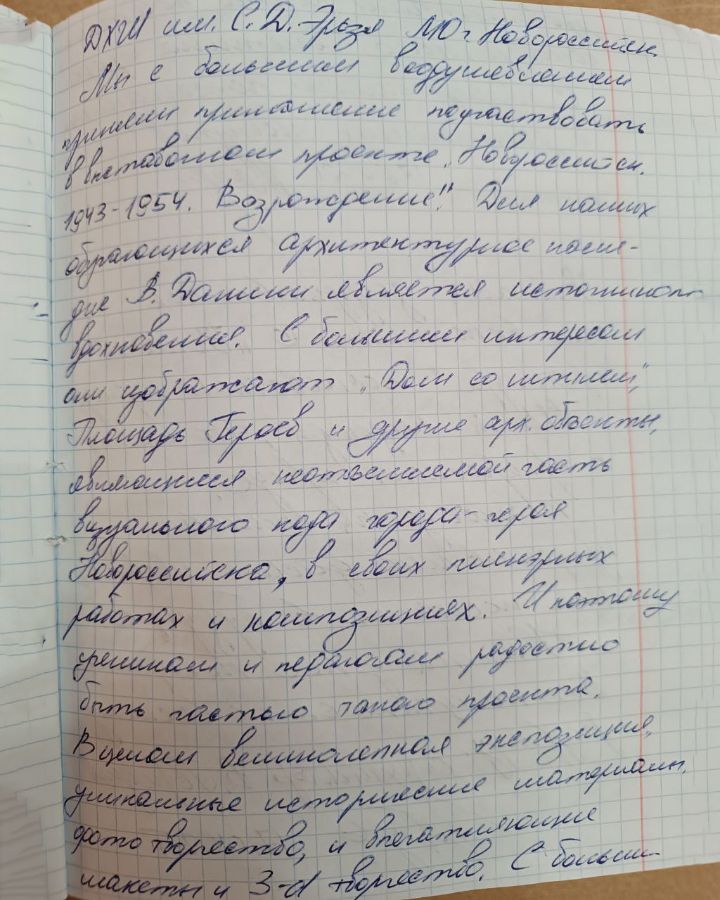 ДХШ им. С.Д. Эрьзя МО г. Новороссийск.
Мы с большим воодушевлением
приняли приглашение поучаствовать
в выставочном проекте „Новороссийск.
1943-1954. Возрождение". Для наших
обучающихся архитектурное насле-
дие Б. Данини является источником
вдохновения. С большим интересом
они изображают „Дом со шпилем",
Площадь Героев и другие арх. объекты,
являющиеся неотъемлемой часть
визуального кода города-героя
Новороссийска, в своих пленэрных
работах и композициях. И поэтому
ученикам и педагогам радостно
быть частью такого проекта.
В целом великолепная экспозиция,
уникальные исторические материалы,
фото творчество, и впечатляющие
макеты и 3-d творчество. С больши-